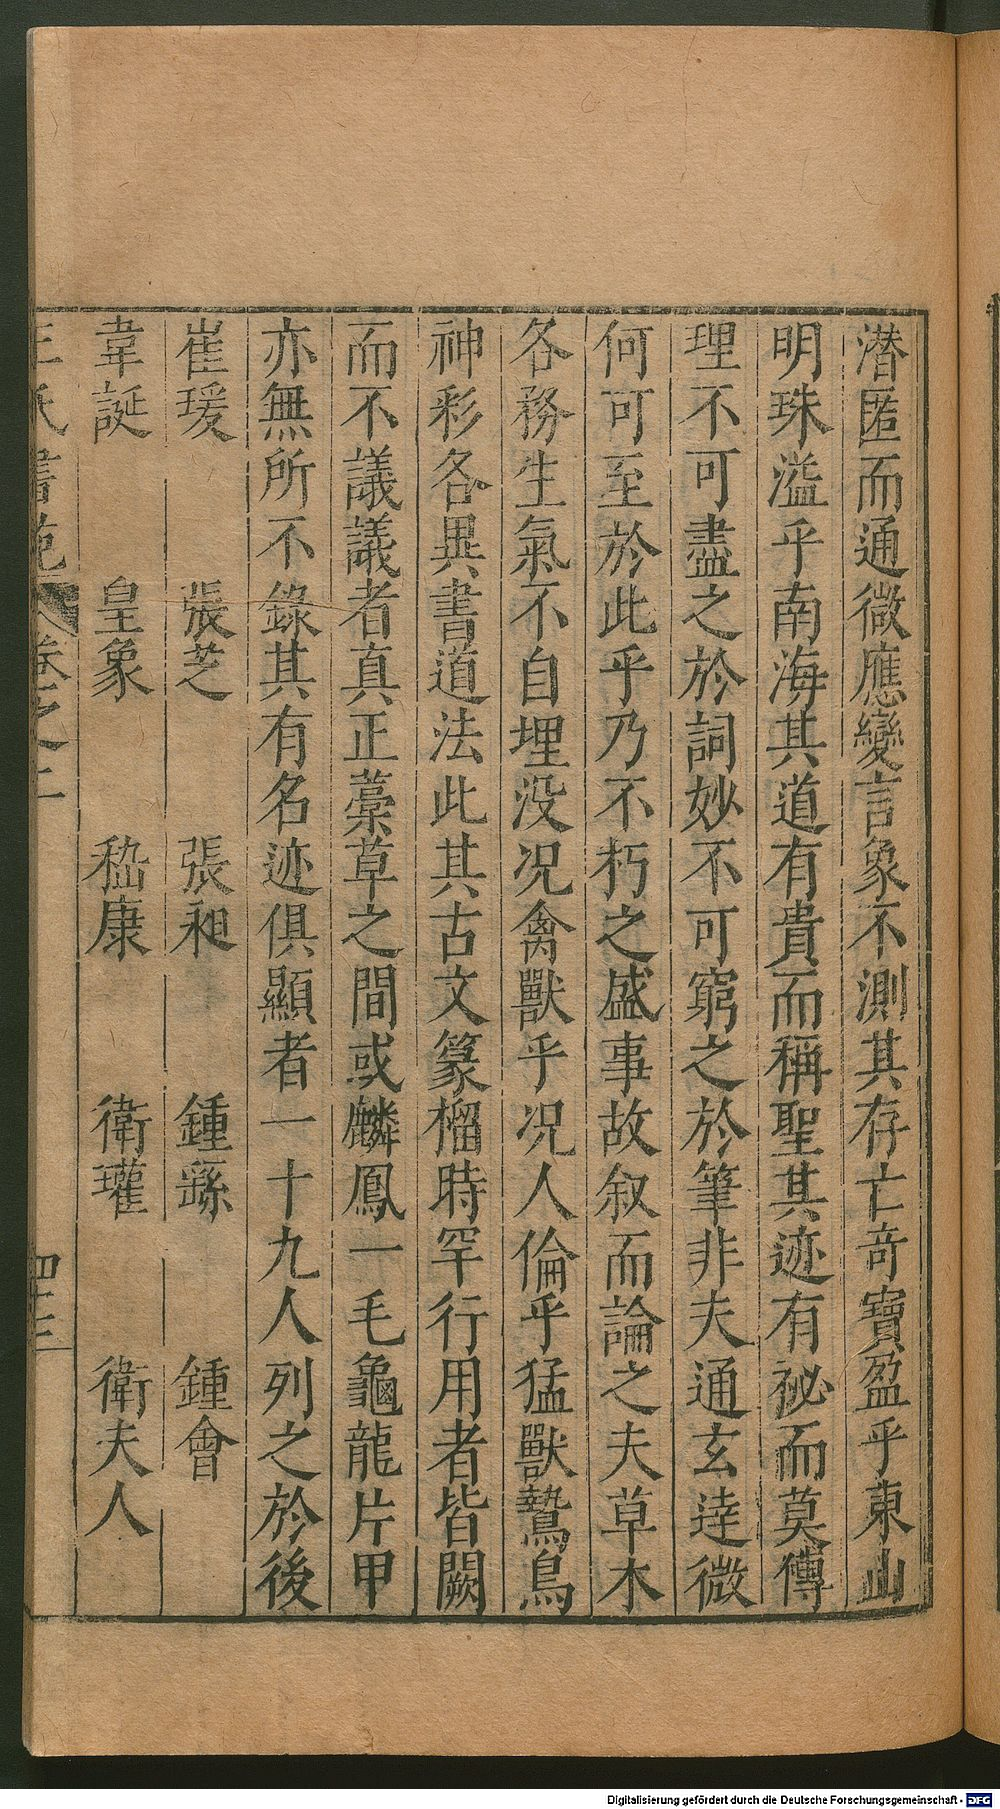 潜匿而通微應變言象不測其存亡竒寶盈乎東山
明珠溢乎南海其道有貴而稱聖其迹有祕而莫傳
理不可盡之於詞妙不可窮之於筆非夫通玄達微
何可至於此乎乃不朽之盛事故叙而論之夫草木
各務生氣不自埋没况禽獸乎况人倫乎猛獸鷙鳥
神彩各異書道法此其古文篆榴時罕行用者皆闕
而不議議者真正藁草之間或麟鳳一毛龜龍片甲
亦無所不錄其有名迹俱顯者一十九人列之於後
崔瑗 張芝 張昶 鍾繇 鍾會
韋誕 皇象 嵇康 衛瓘 衛夫人
王氏書苑 卷之二 四十三
Digitalisierung gefördert durch die Deutsche Forschungsgemeinschaft - DFG